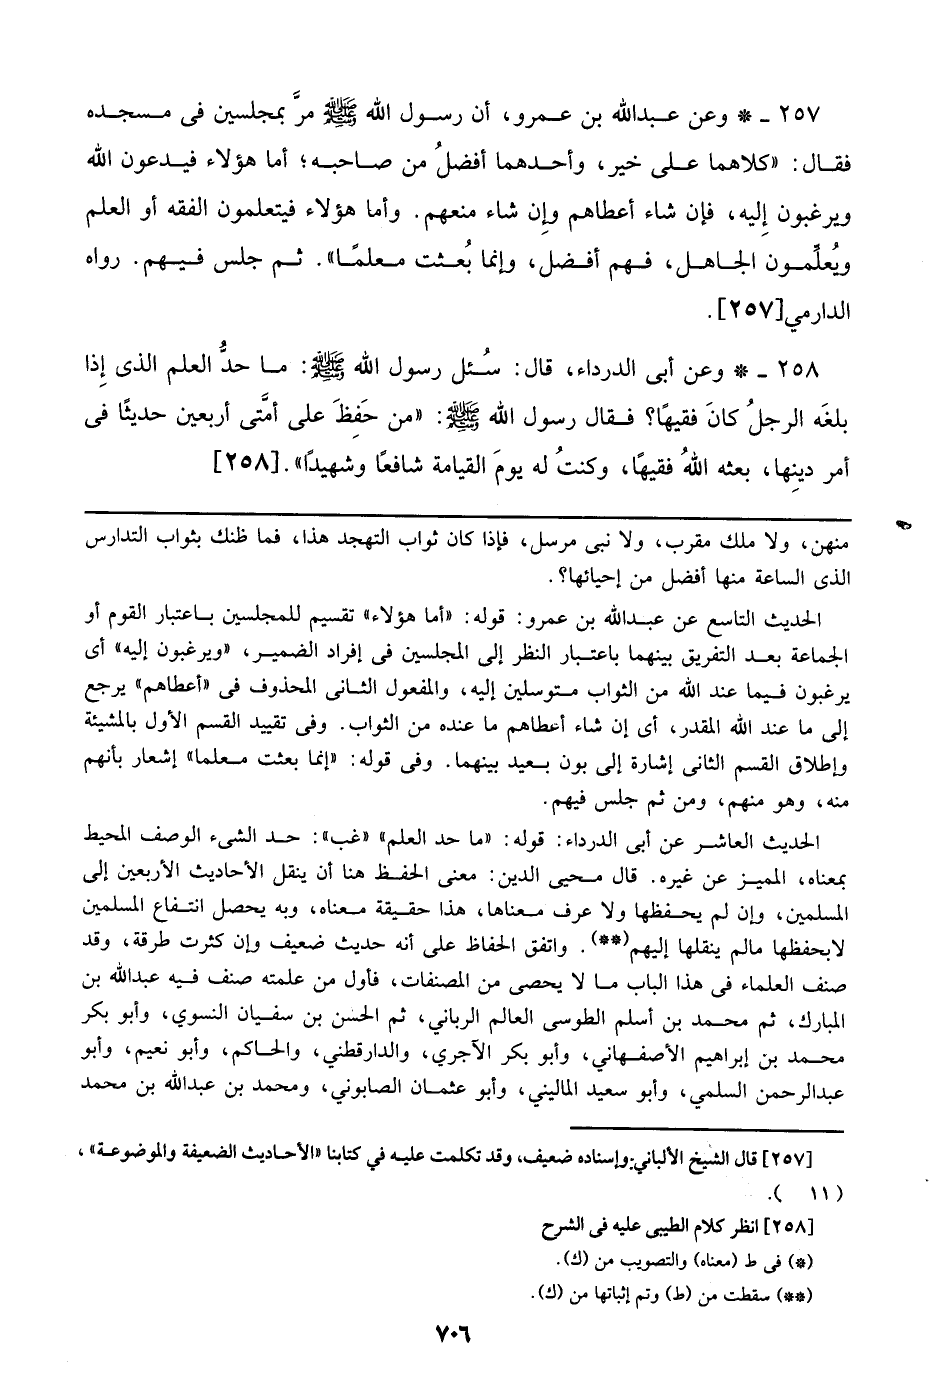 ٢٥٧ ـ * وعن عبدالله بن عمرو، أن رسول الله ﷺ مرَّ بمجلسين فى مسجده
فقال: «كلاهما على خير، وأحدهما أفضلُ من صاحبه؛ أما هؤلاء فيدعون الله
ويرغبون إليه، فإن شاء أعطاهم وإن شاء منعهم. وأما هؤلاء فيتعلمون الفقه أو العلم
ويُعلِّمون الجاهل، فهم أفضل، وإنما بُعثت معلمًا». ثم جلس فيهم. رواه
الدارمي[٢٥٧].
٢٥٨ ـ * وعن أبى الدرداء، قال: سُئل رسول الله ﷺ: ما حدُّ العلم الذى إذا
بلغَه الرجلُ كانَ فقيهًا؟ فقال رسول الله ﷺ: «من حَفِظَ على أمَّتى أربعين حديثًا فى
أمر دينِها، بعثه اللهُ فقيهًا، وكنتُ له يومَ القيامة شافعًا وشهيدًا».[٢٥٨]
منهن، ولا ملك مقرب، ولا نبى مرسل، فإذا كان ثواب التهجد هذا، فما ظنك بثواب التدارس
الذى الساعة منها أفضل من إحيائها؟.
الحديث التاسع عن عبدالله بن عمرو: قوله: «أما هؤلاء» تقسيم للمجلسين باعتبار القوم أو
الجماعة بعد التفريق بينهما باعتبار النظر إلى المجلسين فى إفراد الضمير، «ويرغبون إليه» أى
يرغبون فيما عند الله من الثواب متوسلين إليه، والمفعول الثانى المحذوف فى «أعطاهم» يرجع
إلى ما عند الله المقدر، أى إن شاء أعطاهم ما عنده من الثواب. وفى تقييد القسم الأول بالمشيئة
وإطلاق القسم الثانى إشارة إلى بون بعيد بينهما. وفى قوله: «إنما بعثت معلما» إشعار بأنهم
منه، وهو منهم، ومن ثم جلس فيهم.
الحديث العاشر عن أبى الدرداء: قوله: «ما حد العلم» «غب»: حد الشىء الوصف المحيط
بمعناه، المميز عن غيره. قال محيى الدين: معنى الحفظ هنا أن ينقل الأحاديث الأربعين إلى
المسلمين، وإن لم يحفظها ولا عرف معناها، هذا حقيقة معناه، وبه يحصل انتفاع المسلمين
لابحفظها مالم ينقلها إليهم(**). واتفق الحفاظ على أنه حديث ضعيف وإن كثرت طرقة، وقد
صنف العلماء فى هذا الباب ما لا يحصى من المصنفات، فأول من علمته صنف فيه عبدالله بن
المبارك، ثم محمد بن أسلم الطوسى العالم الرباني، ثم الحسن بن سفيان النسوي، وأبو بكر
محمد بن إبراهيم الأصفهاني، وأبو بكر الآجري، والدارقطني، والحاكم، وأبو نعيم، وأبو
عبدالرحمن السلمي، وأبو سعيد الماليني، وأبو عثمان الصابوني، ومحمد بن عبدالله بن محمد
[٢٥٧] قال الشيخ الألباني: وإسناده ضعيف، وقد تكلمت عليه في كتابنا «الأحاديث الضعيفة والموضوعة»،
(١١ ).
[٢٥٨] انظر كلام الطيبى عليه فى الشرح
(*) فى ط (معناه) والتصويب من (ك).
(**) سقطت من (ط) وتم إثباتها من (ك).
٧٠٦